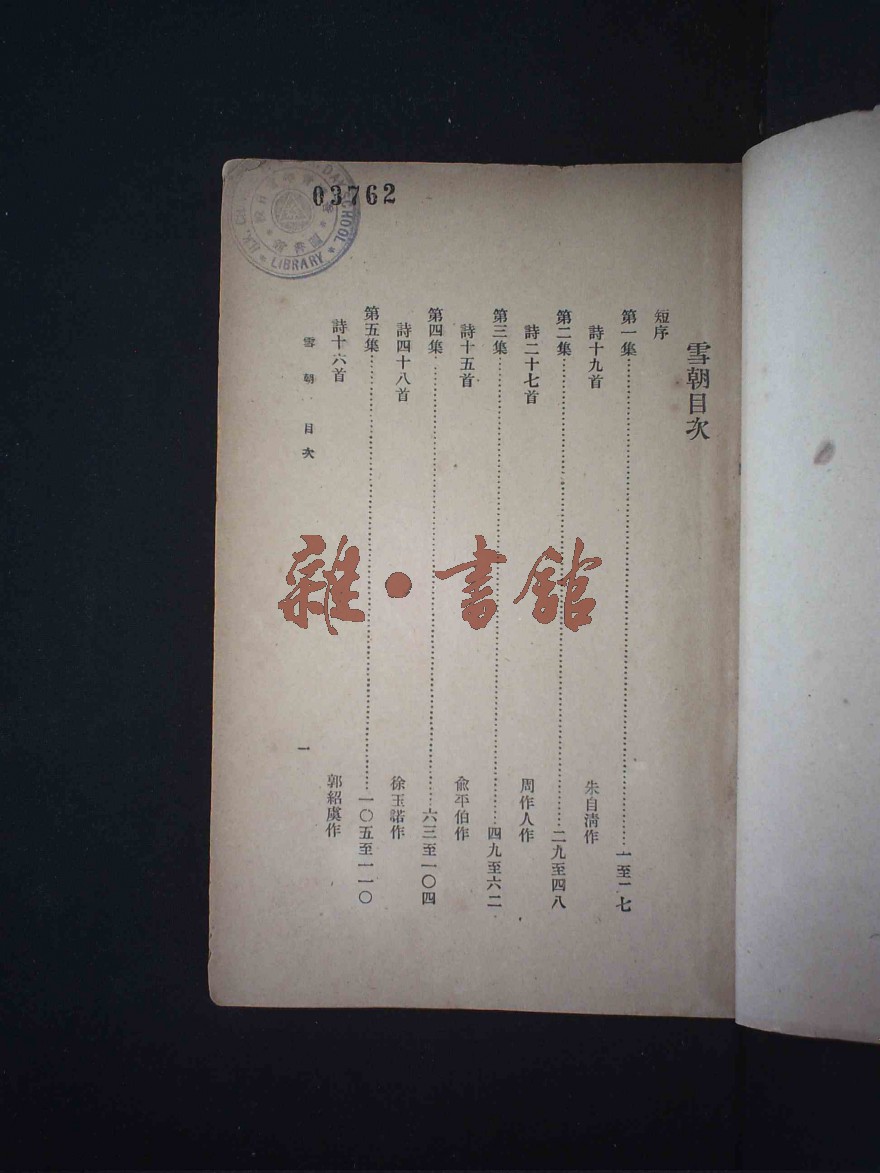 03762
LIBRARY
雪朝目次
短序
第一集……一至二七
詩十九首 朱自清作
第二集……二九至四八
詩二十七首 周作人作
第三集……四九至六二
詩十五首 兪平伯作
第四集……六三至一〇四
詩四十八首 徐玉諾作
第五集……一〇五至一一〇
詩十六首 郭紹虞作
雪朝 目次 一
雜·書館